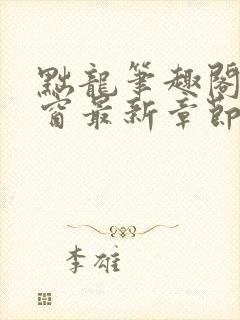 點龍筆趣閣
窗最新章節
李雄